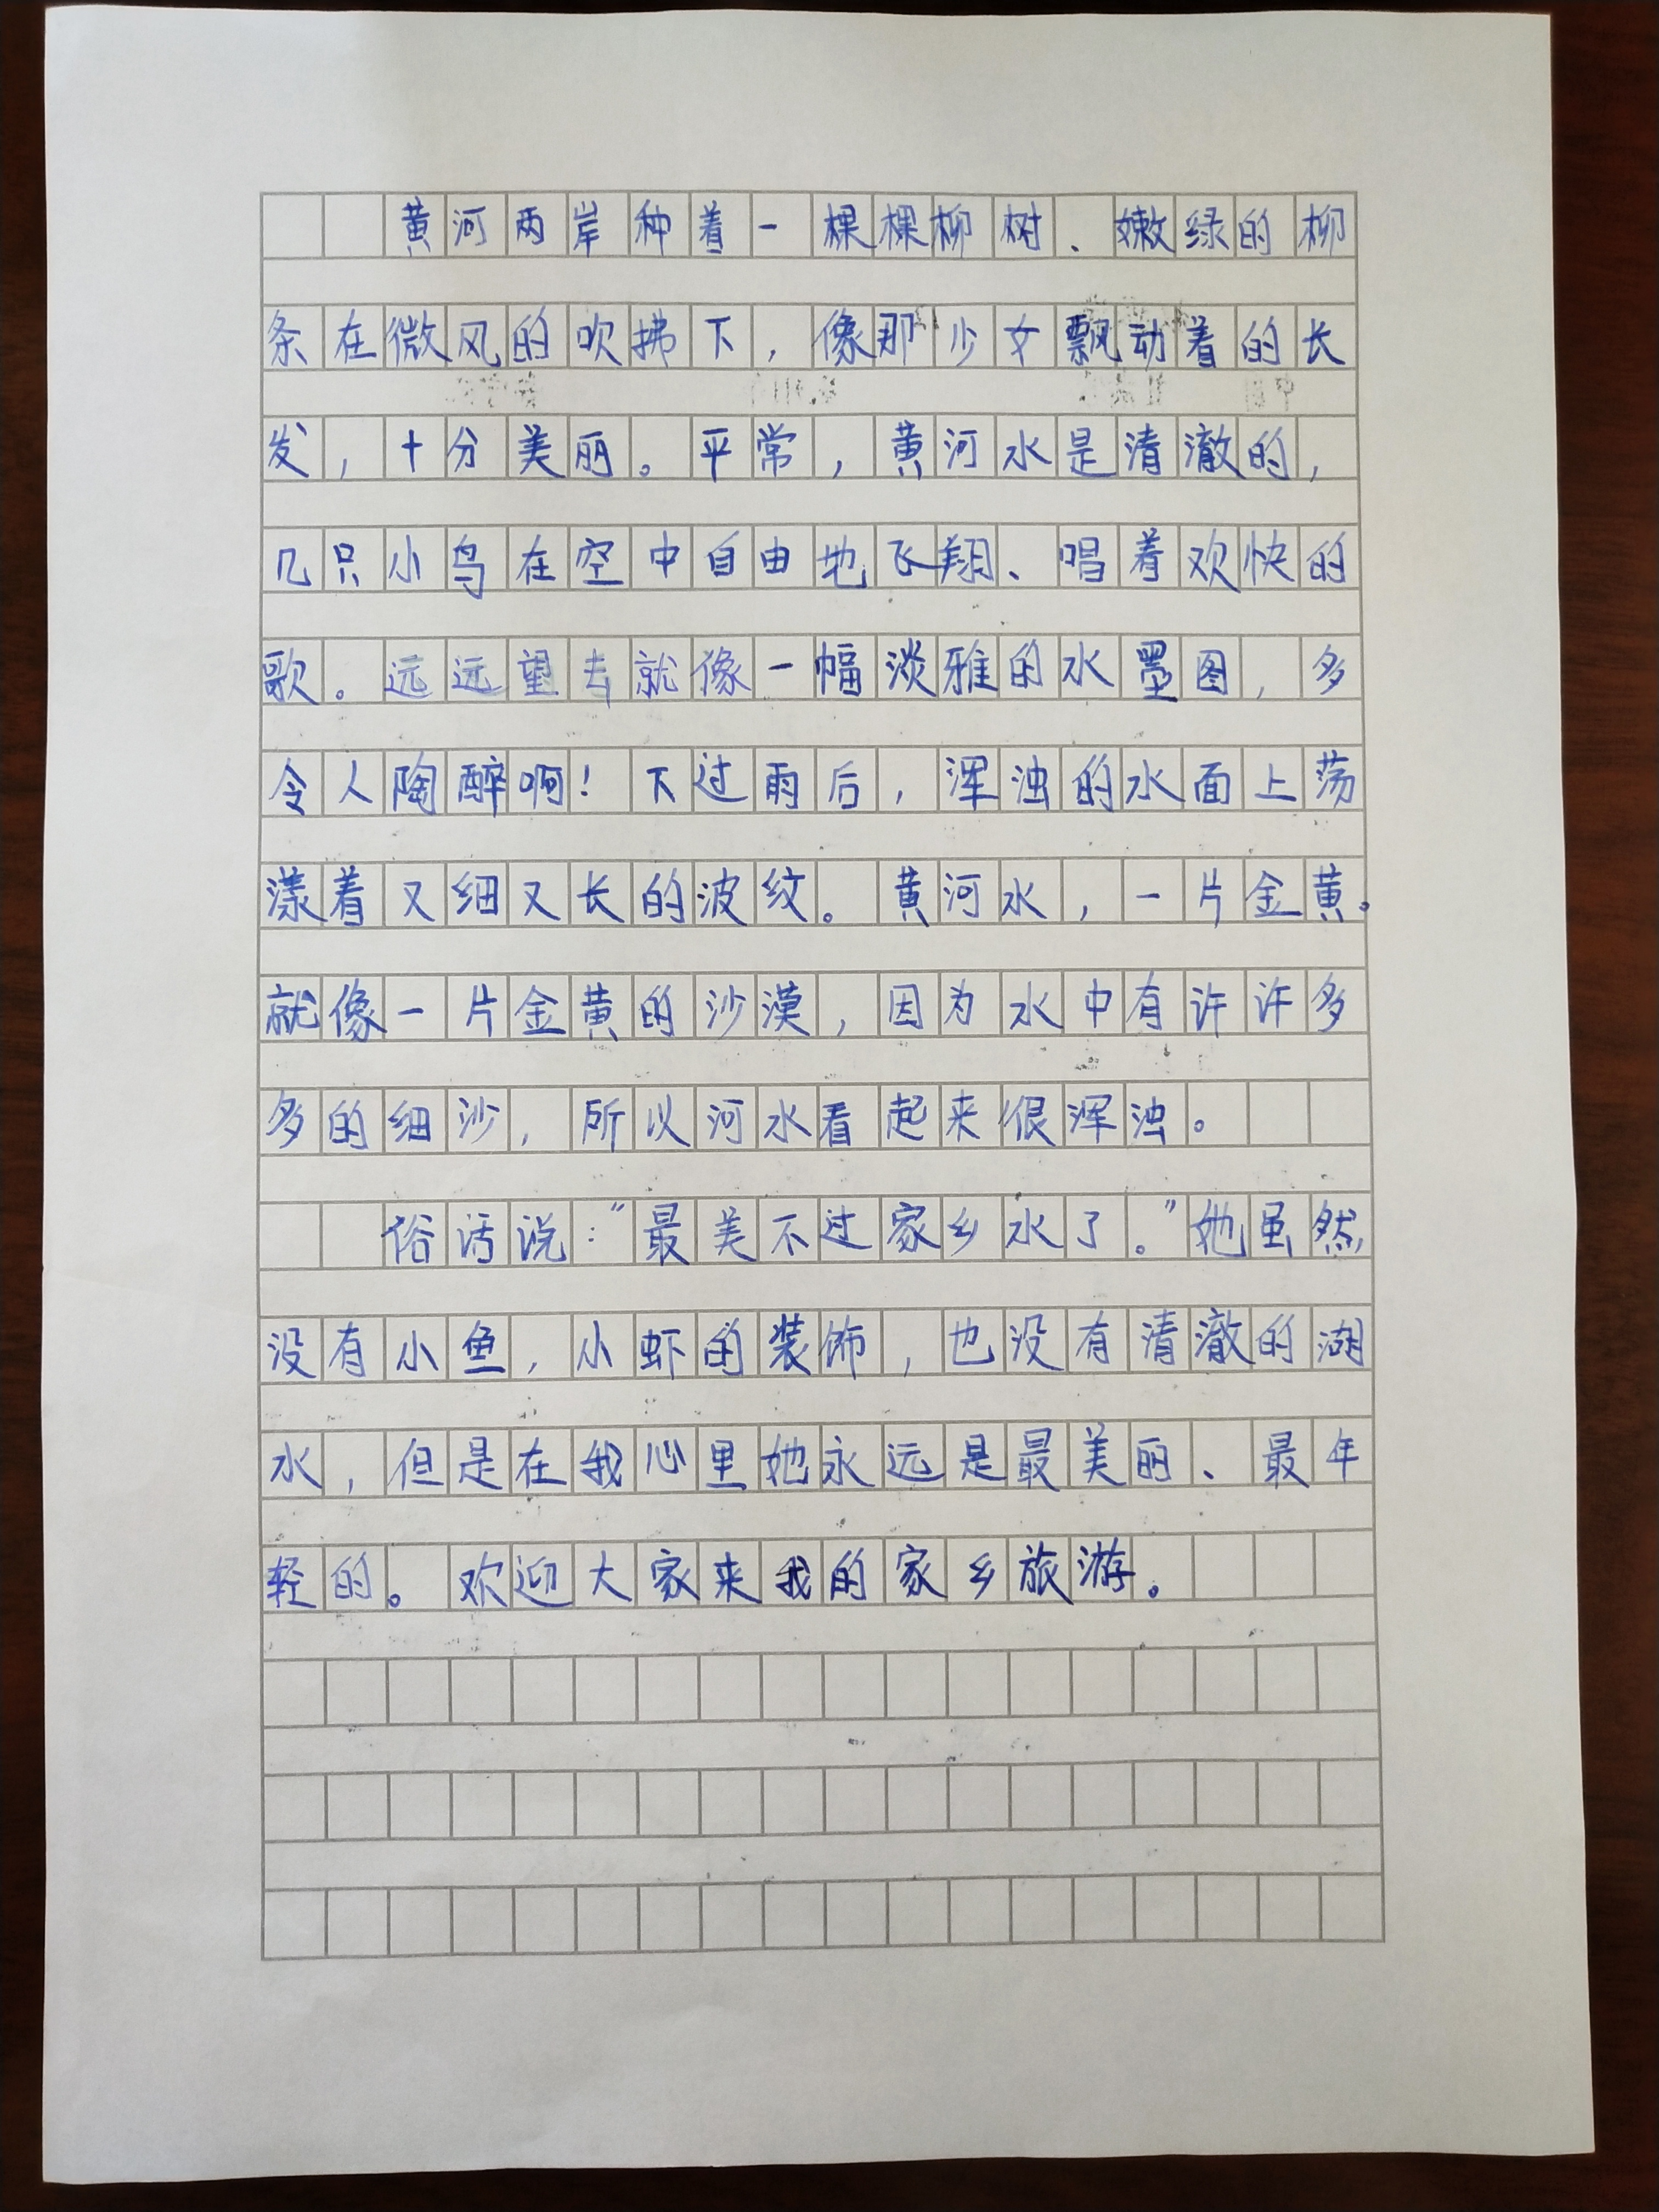 黄河两岸种着一棵棵柳树、嫩绿的柳
条在微风的吹拂下，像那少女飘动着的长
发，十分美丽。平常，黄河水是清澈的，
几只小鸟在空中自由地飞翔、唱着欢快的
歌。远远望去就像一幅淡雅的水墨图，多
令人陶醉啊！下过雨后，浑浊的水面上荡
漾着又细又长的波纹。黄河水，一片金黄。
就像一片金黄的沙漠，因为水中有许许多
多的细沙，所以河水看起来很浑浊。
俗话说：“最美不过家乡水了。”她虽然，
没有小鱼，小虾的装饰，也没有清澈的湖
水，但是在我心里她永远是最美丽、最年
轻的。欢迎大家来我的家乡旅游。